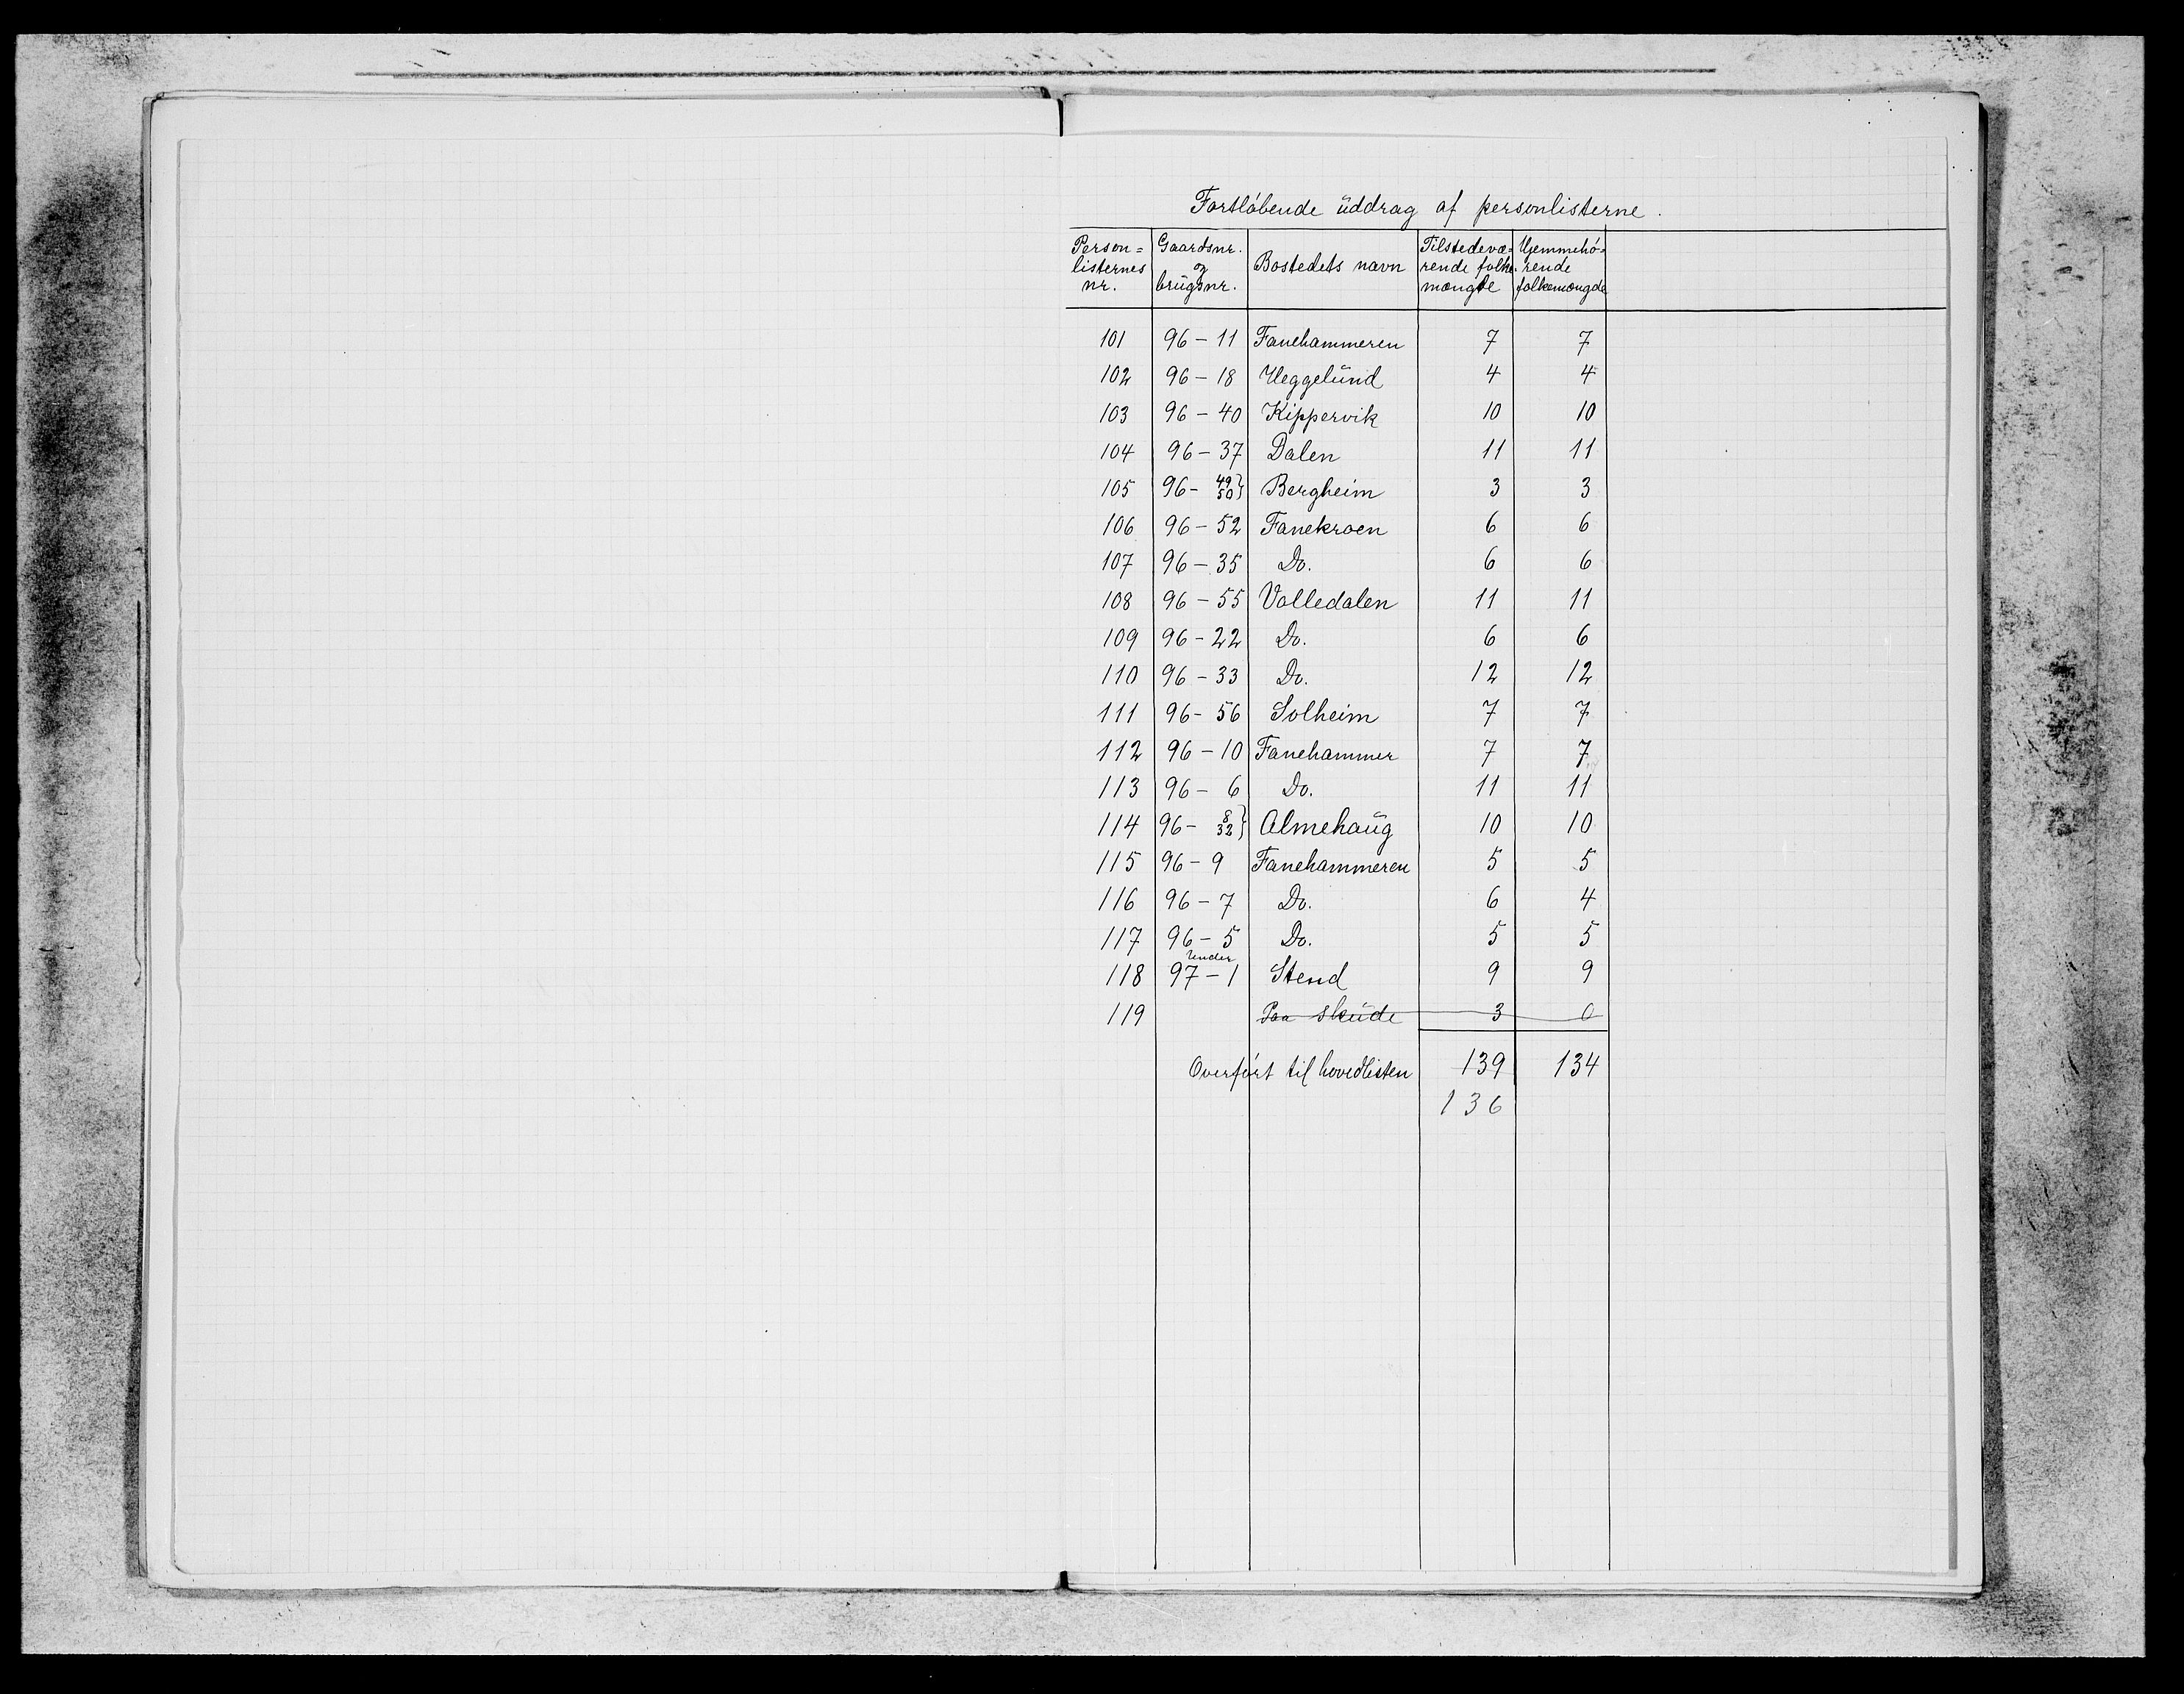 Fortløbende üddrag af personlisterne.
Person=listernes nr. | Gaardsnr. og brügsnr. | Bostedets navn | Tilstedevæ=rende folke=mængde | Hjemmehø=rende folkemængde
101 | 96 – 11 | Fanehammeren | 7 | 7
102 | 96 – 18 | Heggelünd | 4 | 4
103 | 96 – 40 | Kippervik | 10 | 10
104 | 96 – 37 | Dalen | 11 | 11
105 | 96 – 49 50} | Bergheim | 3 | 3
106 | 96 – 52 | Fanekroen | 6 | 6
107 | 96 – 35 | Do. | 6 | 6
108 | 96 – 55 | Valledalen | 11 | 11
109 | 96 – 22 | Do. | 6 | 6
110 | 96 – 33 | Do. | 12 | 12
111 | 96 – 56 | Solheim | 7 | 7
112 | 96 – 10 | Fanehammer | 7 | 7
113 | 96 – 6 | Do. | 11 | 11
114 | 96 – 8 32} | Almehaüg | 10 | 10
115 | 96 – 9 | Fanehammeren | 5 | 5
116 | 96 – 7 | Do. | 6 | 4
117 | 96 – 5 | Do. | 5 | 5
118 | Under 97 – 1 | Stend | 9 | 9
119 | Paa sküde | 3 | 0
Overført til hovedlisten | 139 | 134
136